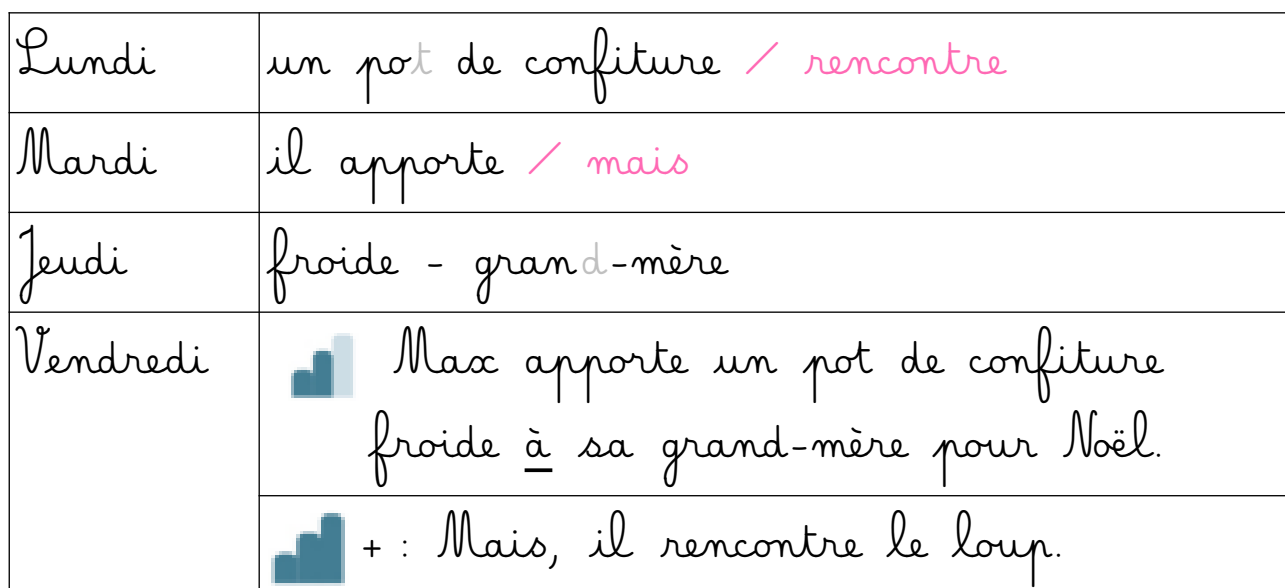 Lundi un pot de confiture / rencontre
Mardi il apporte / mais
Jeudi froide - grand-mère
Vendredi Max apporte un pot de confiture
froide à sa grand-mère pour Noël.
+ : Mais, il rencontre le loup.